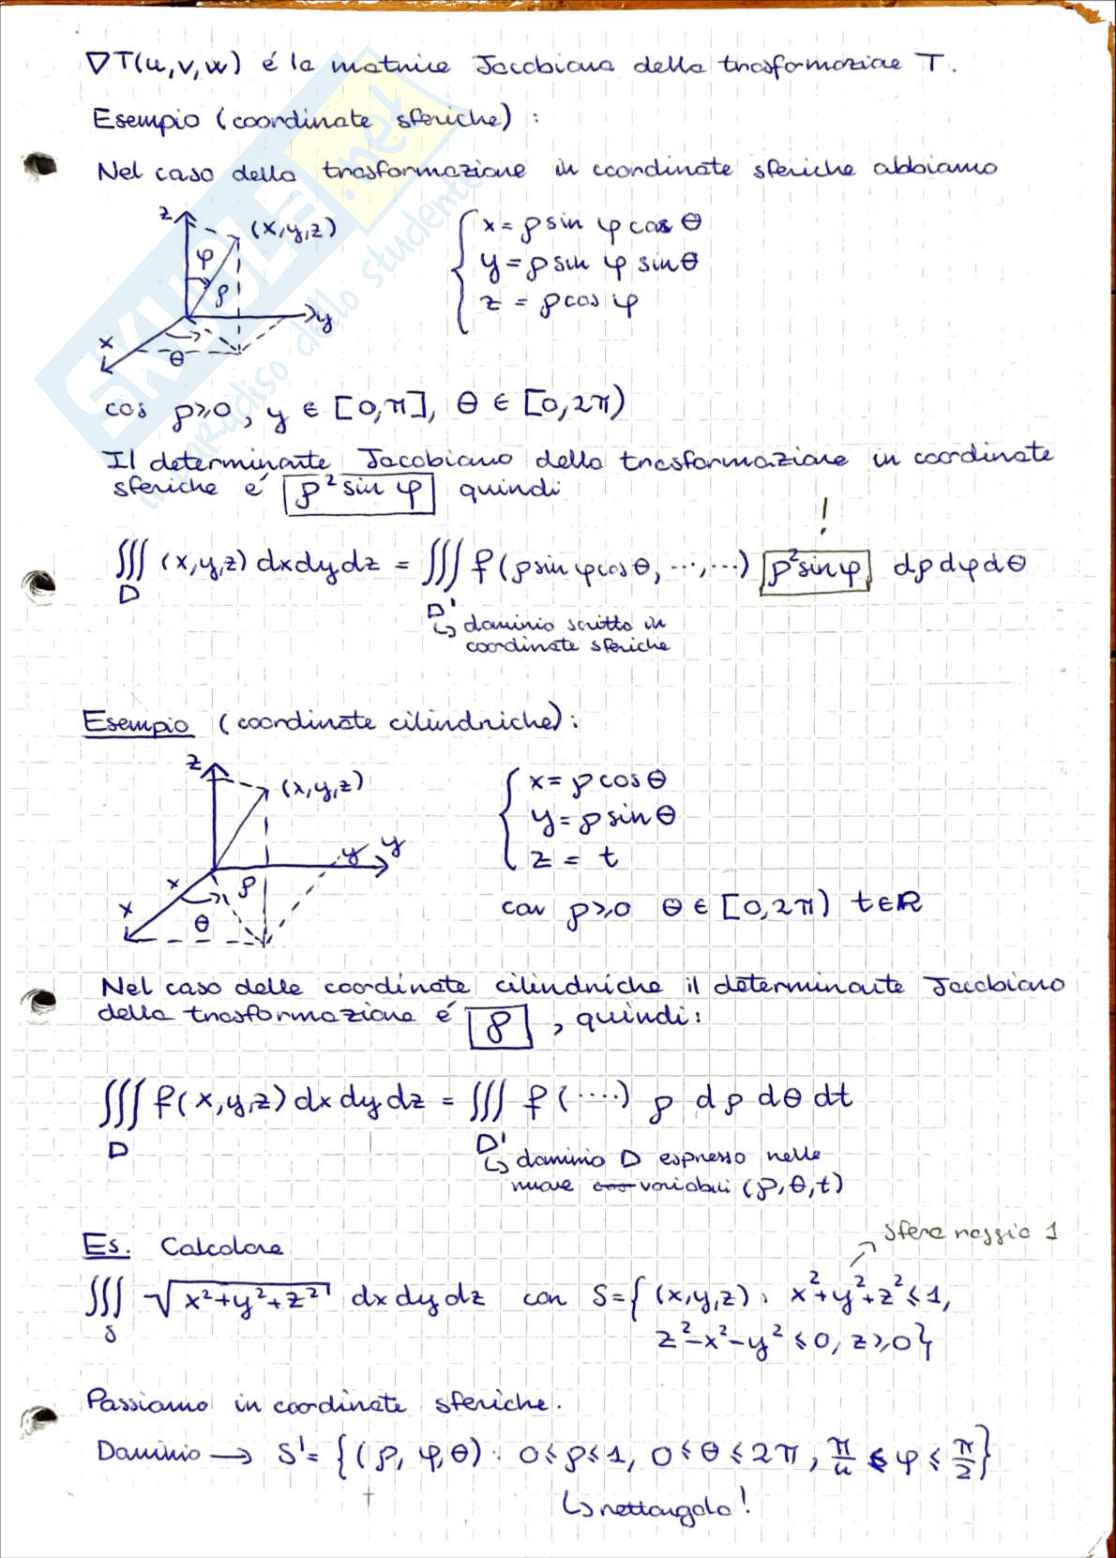 ∇T(u,v,w) é la matrice Jacobiana della trasformazione T.
Esempio (coordinate sferiche) :
Nel caso della trasformazione in coordinate sferiche abbiamo
z (x,y,z) φ ρ y x θ
x = ρ sin φ cos θ
y = ρ sin φ sin θ
z = ρ cos φ
cos ρ≥0, y ∈ [0,π], θ ∈ [0,2π)
Il determinante Jacobiano della trasformazione in coordinate
sferiche é ρ² sin φ quindi
!
∭ (x,y,z) dxdydz = ∭ f(ρ sin φ cos θ, ..., ...) ρ² sin φ dρ dφ dθ
D D'
↳ dominio scritto in
coordinate sferiche
Esempio (coordinate cilindriche):
z (x,y,z) y y x ρ x θ
x = ρ cos θ
y = ρ sin θ
z = t
con ρ≥0 θ ∈ [0,2π) t∈R
Nel caso delle coordinate cilindriche il determinante Jacobiano
della trasformazione é ρ , quindi:
∭ f(x,y,z) dx dy dz = ∭ f(....) ρ dρ dθ dt
D D'
↳ dominio D espresso nelle
nuove variabili (ρ,θ,t)
sfera raggio 1
Es. Calcolare
∭ √x²+y²+z² dx dy dz con S={(x,y,z): x²+y²+z²≤1,
S
z²-x²-y² ≤0, z≥0}
Passiamo in coordinate sferiche.
Dominio → S'= {(ρ, φ,θ): 0≤ρ≤1, 0≤θ≤2π, π/4 ≤ φ ≤ π/2}
↳ rettangolo!
SKUOLA.net
il paradiso dello studente